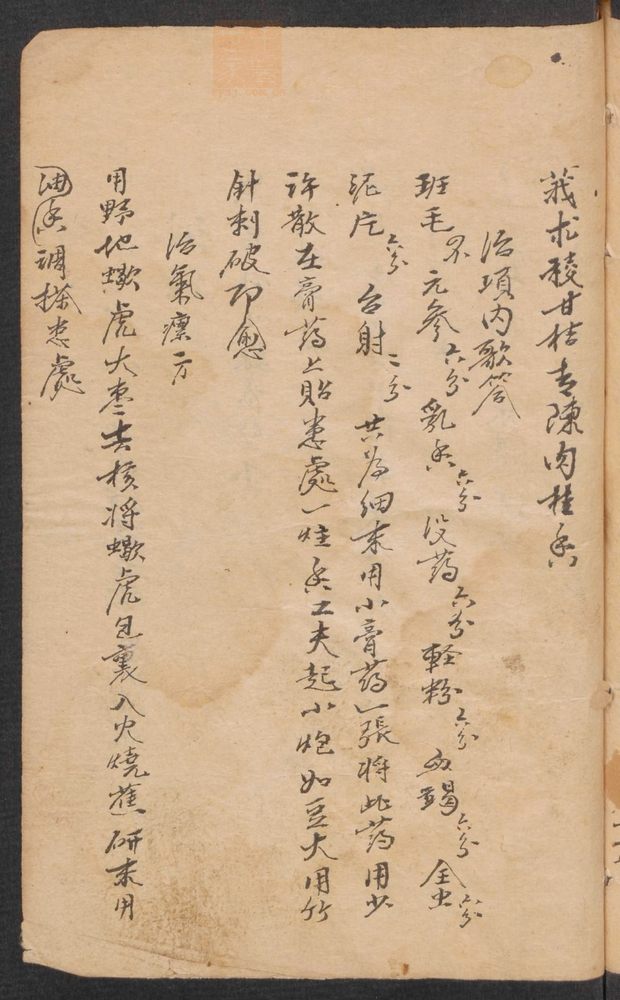 莪朮稜甘桔青陳肉桂香
治項内歌答
班毛不元參六分乳香六分没药六分輕粉六分血竭六分全虫六分
泥片六分台射二分共为细末用小膏药一張将此药用少
许散在膏药上貼患處一炷香工夫起小炮如豆大用竹
針刺破即愈
治氣瘰一方
用野地蠍虎大枣去核将蠍虎包裹入火燒蕉研末用
油香調搽患處